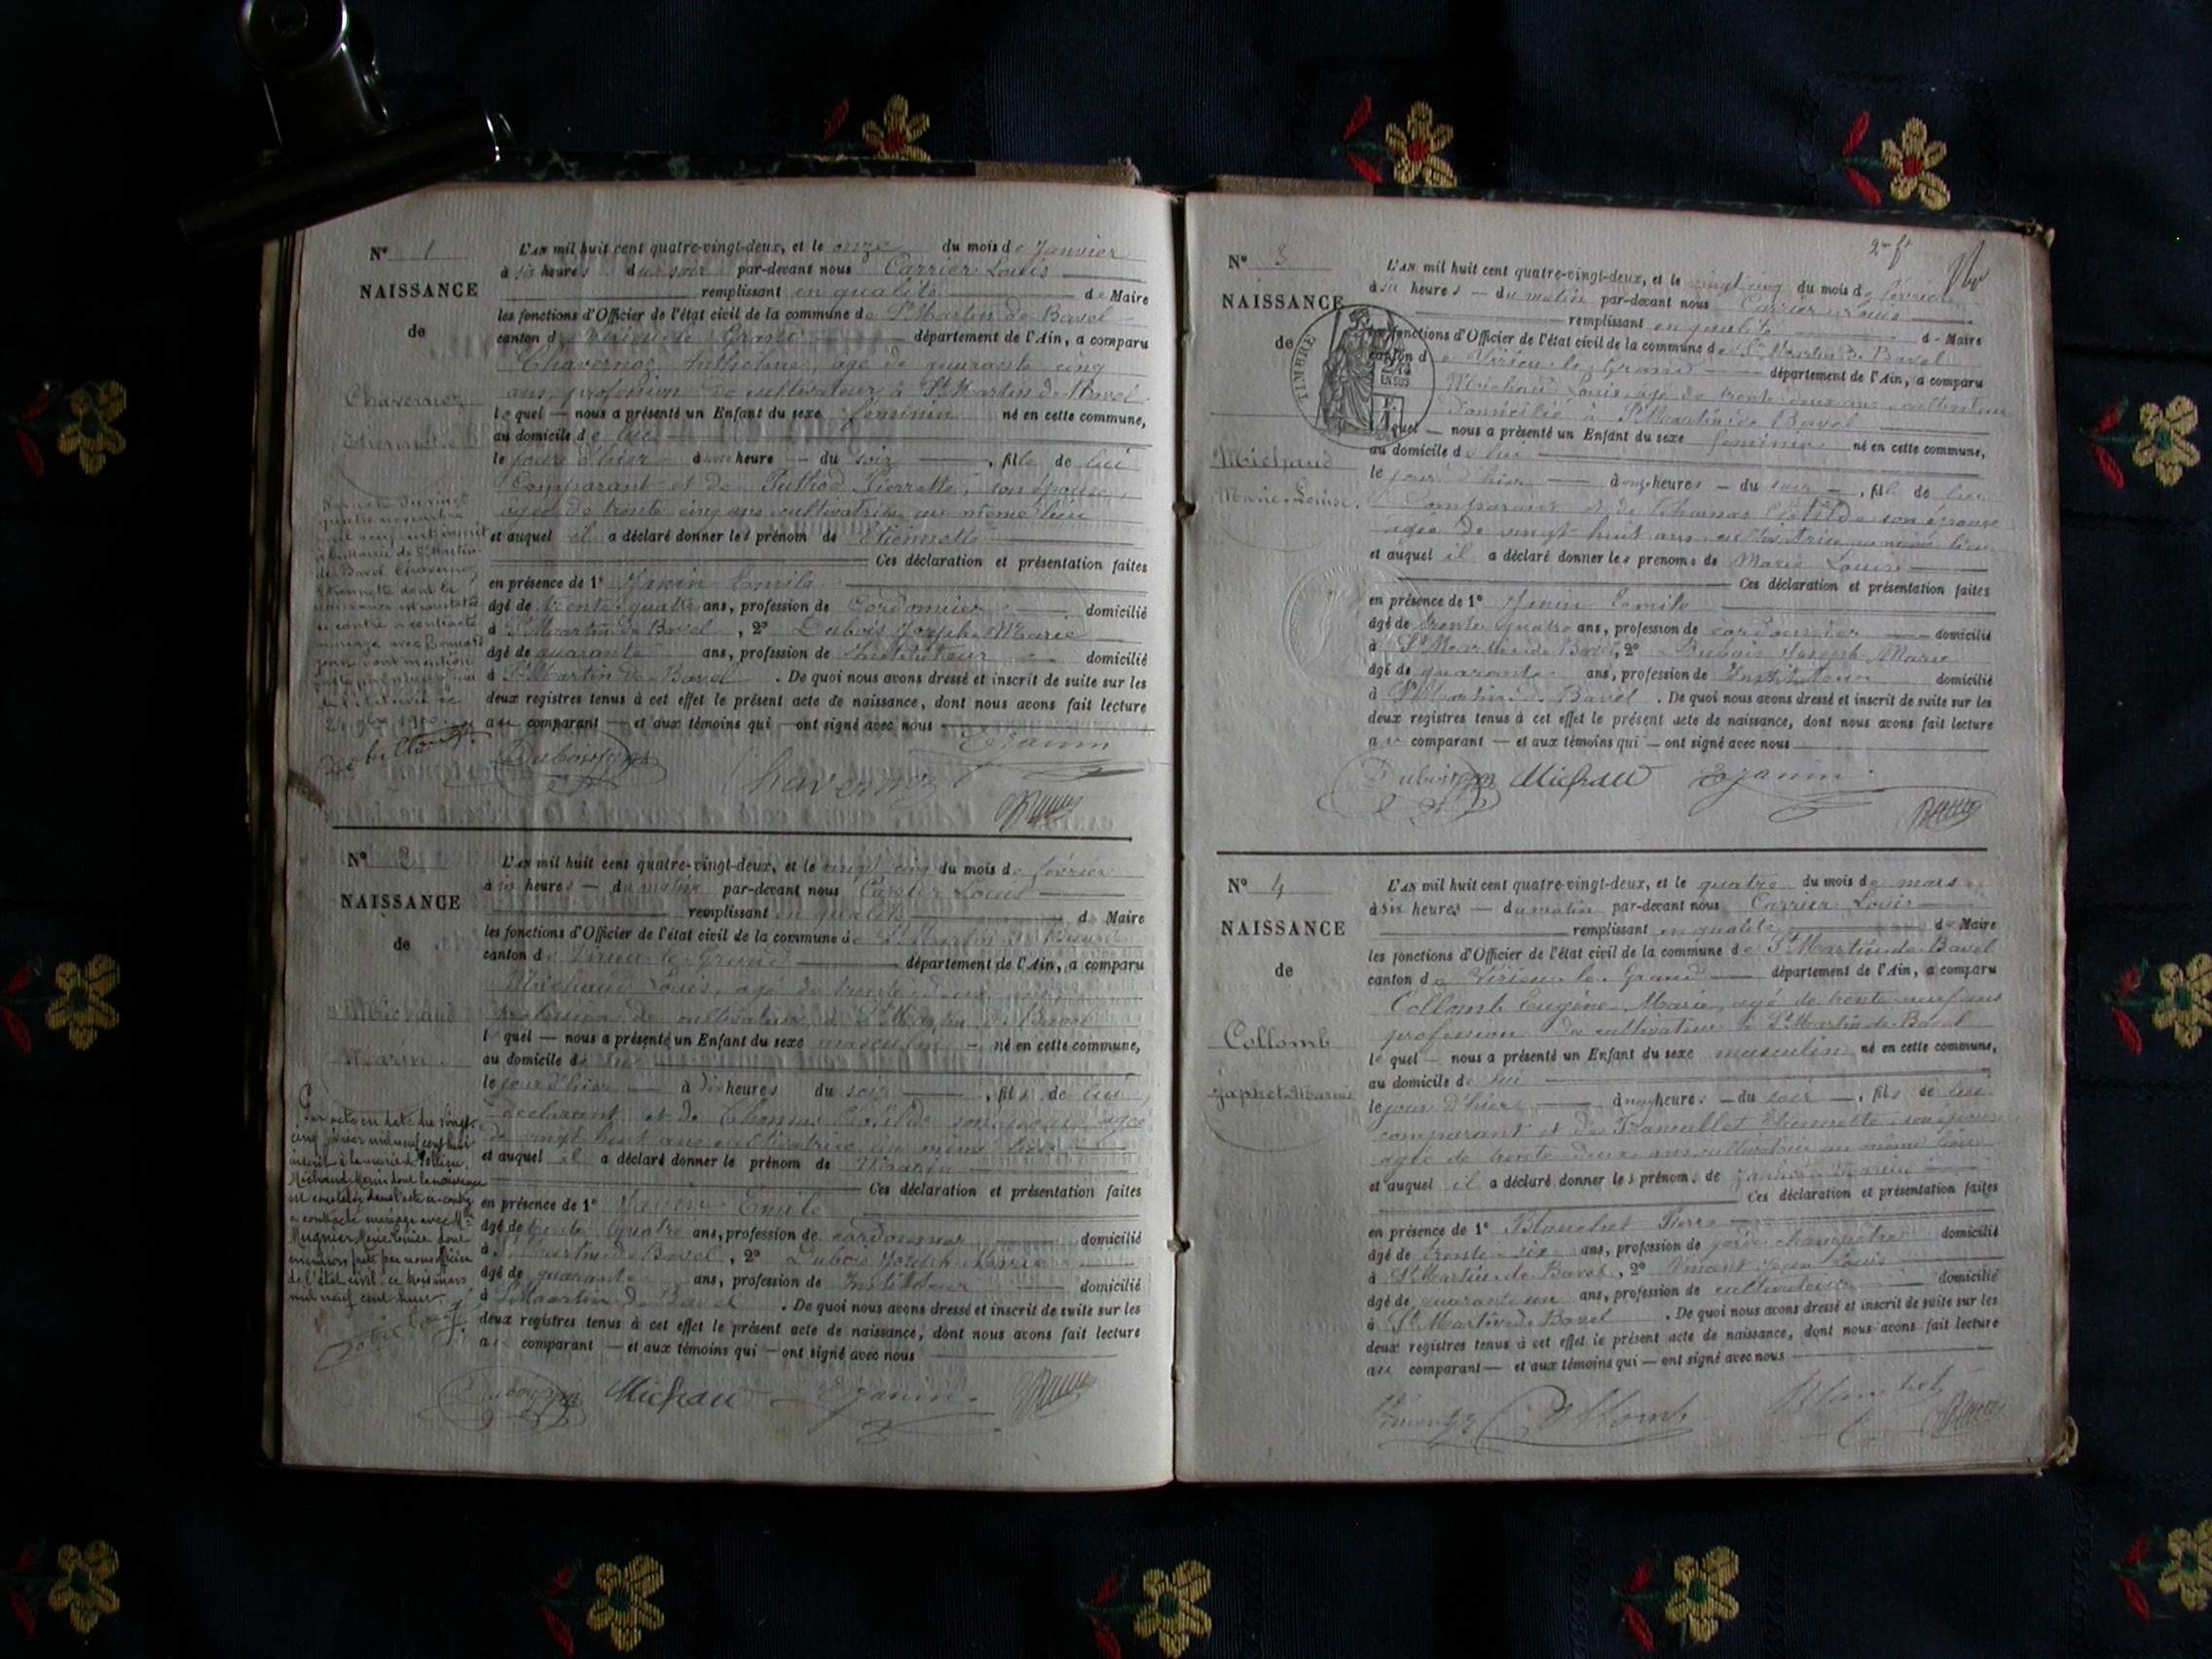 N° 1
NAISSANCE
de
Chavernoz
Etiennette
L'AN mil huit cent quatre-vingt-deux, et le onze du mois de Janvier
à six heures du soir par-devant nous Carrier Louis
remplissant en qualité de Maire
les fonctions d'Officier de l'état civil de la commune de St Martin de Bavel
canton de Virieu le Grand département de l'Ain, a comparu
Chavernoz Anthelme, agé de quarante cinq
ans, profession de cultivateur à St Martin de Bavel
lequel — nous a présenté un Enfant du sexe féminin né en cette commune,
au domicile de lui
le jour d'hier à heure — du soir , fille de lui
comparant et de Pierrette, son épouse,
agée de trente cinq ans cultivatrice au même lieu
et auquel il a déclaré donner les prénom de Etiennette
Ces déclaration et présentation faites
en présence de 1° Janin Emile
âgé de trente quatre ans, profession de Cordonnier domicilié
à St Martin de Bavel , 2° Dubois Joseph Marie
âgé de quarante ans, profession de Instituteur domicilié
à St Martin de Bavel . De quoi nous avons dressé et inscrit de suite sur les
deux registres tenus à cet effet le présent acte de naissance, dont nous avons fait lecture
au comparant — et aux témoins qui — ont signé avec nous
Chavernoz EJanin
N° 2
NAISSANCE
de
Michaud
Marin
Par acte en date du vingt
cinq février mil neuf cent huit
inscrit à la mairie de
Michaud Marin dont la naissance
est constatée dans l'acte ci-contre
a contracté mariage avec Mlle
Mugnier Marie Louise dont
mention faite par nous officier
de l'état civil, ce trois mars
mil neuf cent huit.
L'AN mil huit cent quatre-vingt-deux, et le vingt cinq du mois de février
à six heures — du matin par-devant nous Carrier Louis
remplissant en qualité de Maire
les fonctions d'Officier de l'état civil de la commune de St Martin de Bavel
canton de Virieu le Grand département de l'Ain, a comparu
Michaud Louis, agé de trente deux ans,
profession de cultivateur, à St Martin de Bavel
lequel — nous a présenté un Enfant du sexe masculin — né en cette commune,
au domicile de lui
le jour d'hier — à dix heures du soir , fils de lui
déclarant et de Thomas Clotilde son épouse agée
de vingt huit ans cultivatrice au même lieu
et auquel il a déclaré donner le prénom de Marin
Ces déclaration et présentation faites
en présence de 1° Janin Emile
âgé de trente quatre ans, profession de cordonnier domicilié
à St Martin de Bavel , 2° Dubois Joseph Marie
âgé de quarante ans, profession de Instituteur domicilié
à St Martin de Bavel . De quoi nous avons dressé et inscrit de suite sur les
deux registres tenus à cet effet le présent acte de naissance, dont nous avons fait lecture
au comparant — et aux témoins qui — ont signé avec nous
Michau EJanin
N° 3
NAISSANCE
de
TIMBRE
Michaud
Marie-Louise.
L'AN mil huit cent quatre-vingt-deux, et le vingt cinq du mois de février
à six heures — du matin par-devant nous Carrier Louis
remplissant en qualité de Maire
les fonctions d'Officier de l'état civil de la commune de St Martin de Bavel
canton de Virieu le Grand département de l'Ain, a comparu
Michaud Louis, agé de trente deux ans cultivateur
domicilié à St Martin de Bavel
lequel — nous a présenté un Enfant du sexe féminin né en cette commune,
au domicile de lui
le jour d'hier — à onze heures — du soir — , fille de lui
comparant et de Thomas Clotilde son épouse
agée de vingt huit ans cultivatrice au même lieu
et auquel il a déclaré donner les prénoms de Marie Louise
Ces déclaration et présentation faites
en présence de 1° Janin Emile
âgé de trente quatre ans, profession de cordonnier domicilié
à St Martin de Bavel, 2° Dubois Joseph Marie
âgé de quarante ans, profession de Instituteur domicilié
à St Martin de Bavel . De quoi nous avons dressé et inscrit de suite sur les
deux registres tenus à cet effet le présent acte de naissance, dont nous avons fait lecture
au comparant — et aux témoins qui — ont signé avec nous
Michau EJanin
N° 4
NAISSANCE
de
Collomb
Japhet-Marius
L'AN mil huit cent quatre-vingt-deux, et le quatre du mois de mars
à six heures — du matin par-devant nous Carrier Louis
remplissant en qualité de Maire
les fonctions d'Officier de l'état civil de la commune de St Martin de Bavel
canton de Virieu le Grand département de l'Ain, a comparu
Collomb Eugène Marie, agé de trente neuf ans
profession de cultivateur à St Martin de Bavel
lequel — nous a présenté un Enfant du sexe masculin né en cette commune,
au domicile de lui
le jour d'hier — à heures — du soir — , fils de lui
comparant et de Etiennette son épouse
agée de trente deux ans cultivatrice au même lieu
et auquel il a déclaré donner les prénoms de
Ces déclaration et présentation faites
en présence de 1° Blanchet Pierre
âgé de trente six ans, profession de garde champêtre domicilié
à St Martin de Bavel, 2° Jean Louis
âgé de quarante un ans, profession de cultivateur domicilié
à St Martin de Bavel . De quoi nous avons dressé et inscrit de suite sur les
deux registres tenus à cet effet le présent acte de naissance, dont nous avons fait lecture
au comparant — et aux témoins qui — ont signé avec nous
Collomb Blanchet